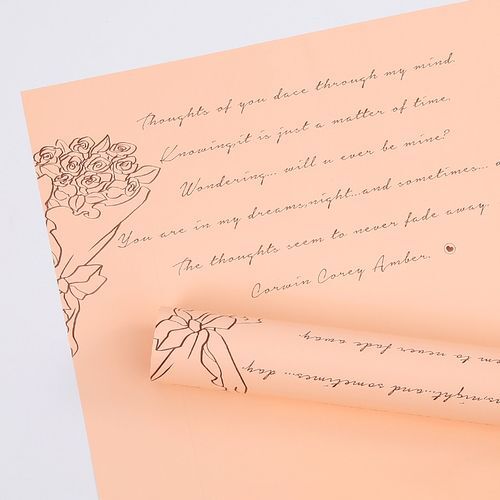 Thoughts of you dace through my mind.
Knowing,it is just a matter of time,
Wondering... will u ever be mine?
You are in my dreams,night...and sometimes...
The thoughts seem to never fade away.
Corwin Corey Amber.
to never fade away.
night...and sometimes... day.